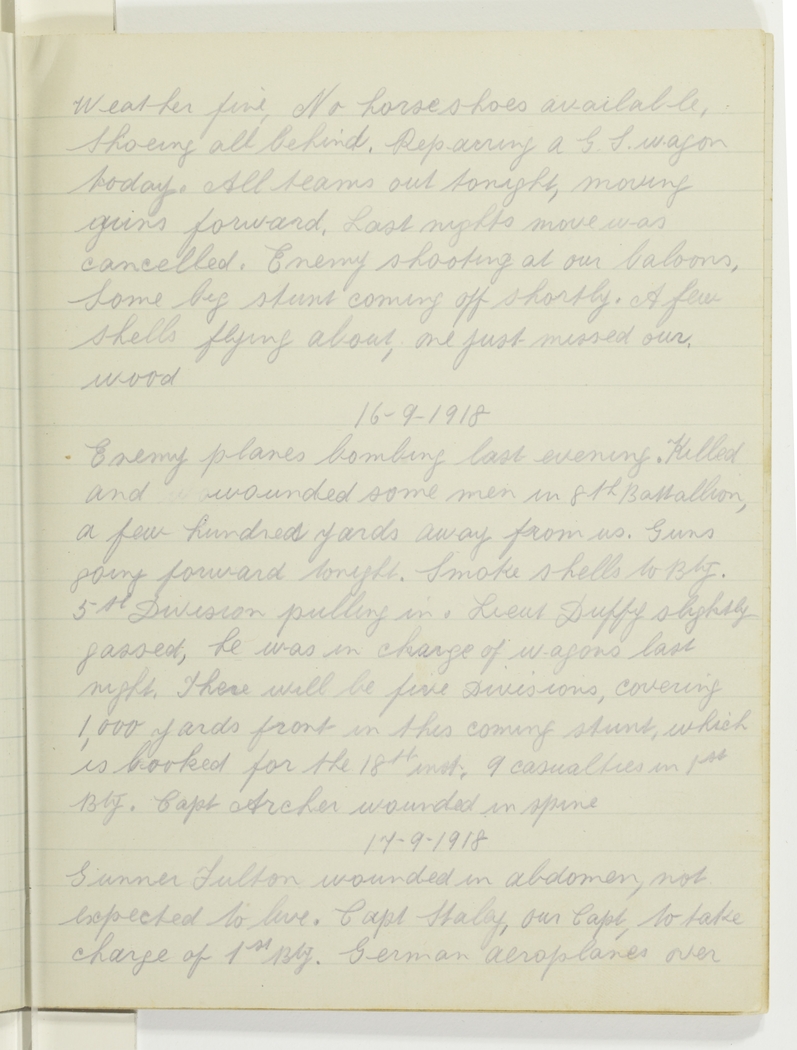 Weather fine, No horseshoes available,
shoeing all behind. Repairing a G.S. wagon
today. All teams out tonight, moving
guns forward. Last nights move was
cancelled. Enemy shooting at our baloons,
some big stunt coming off shortly. A few
shells flying about, one just missed our
wood
16-9-1918
Enemy planes bombing last evening. Killed
and wounded some men in 8th Battallion,
a few hundred yards away from us. Guns
going forward tonight. Smoke shells to Bty.
5th Division pulling in. Lieut Duffy slightly
gassed, he was in charge of wagons last
night. There will be five Divisions, covering
1,000 yards front in this coming stunt, which
is booked for the 18th inst. 9 casualties in 1st
Bty. Capt Archer wounded in spine
17-9-1918
Gunner Fulton wounded in abdomen, not
expected to live. Capt Staley, our Capt, to take
charge of 1st Bty. German aeroplanes over